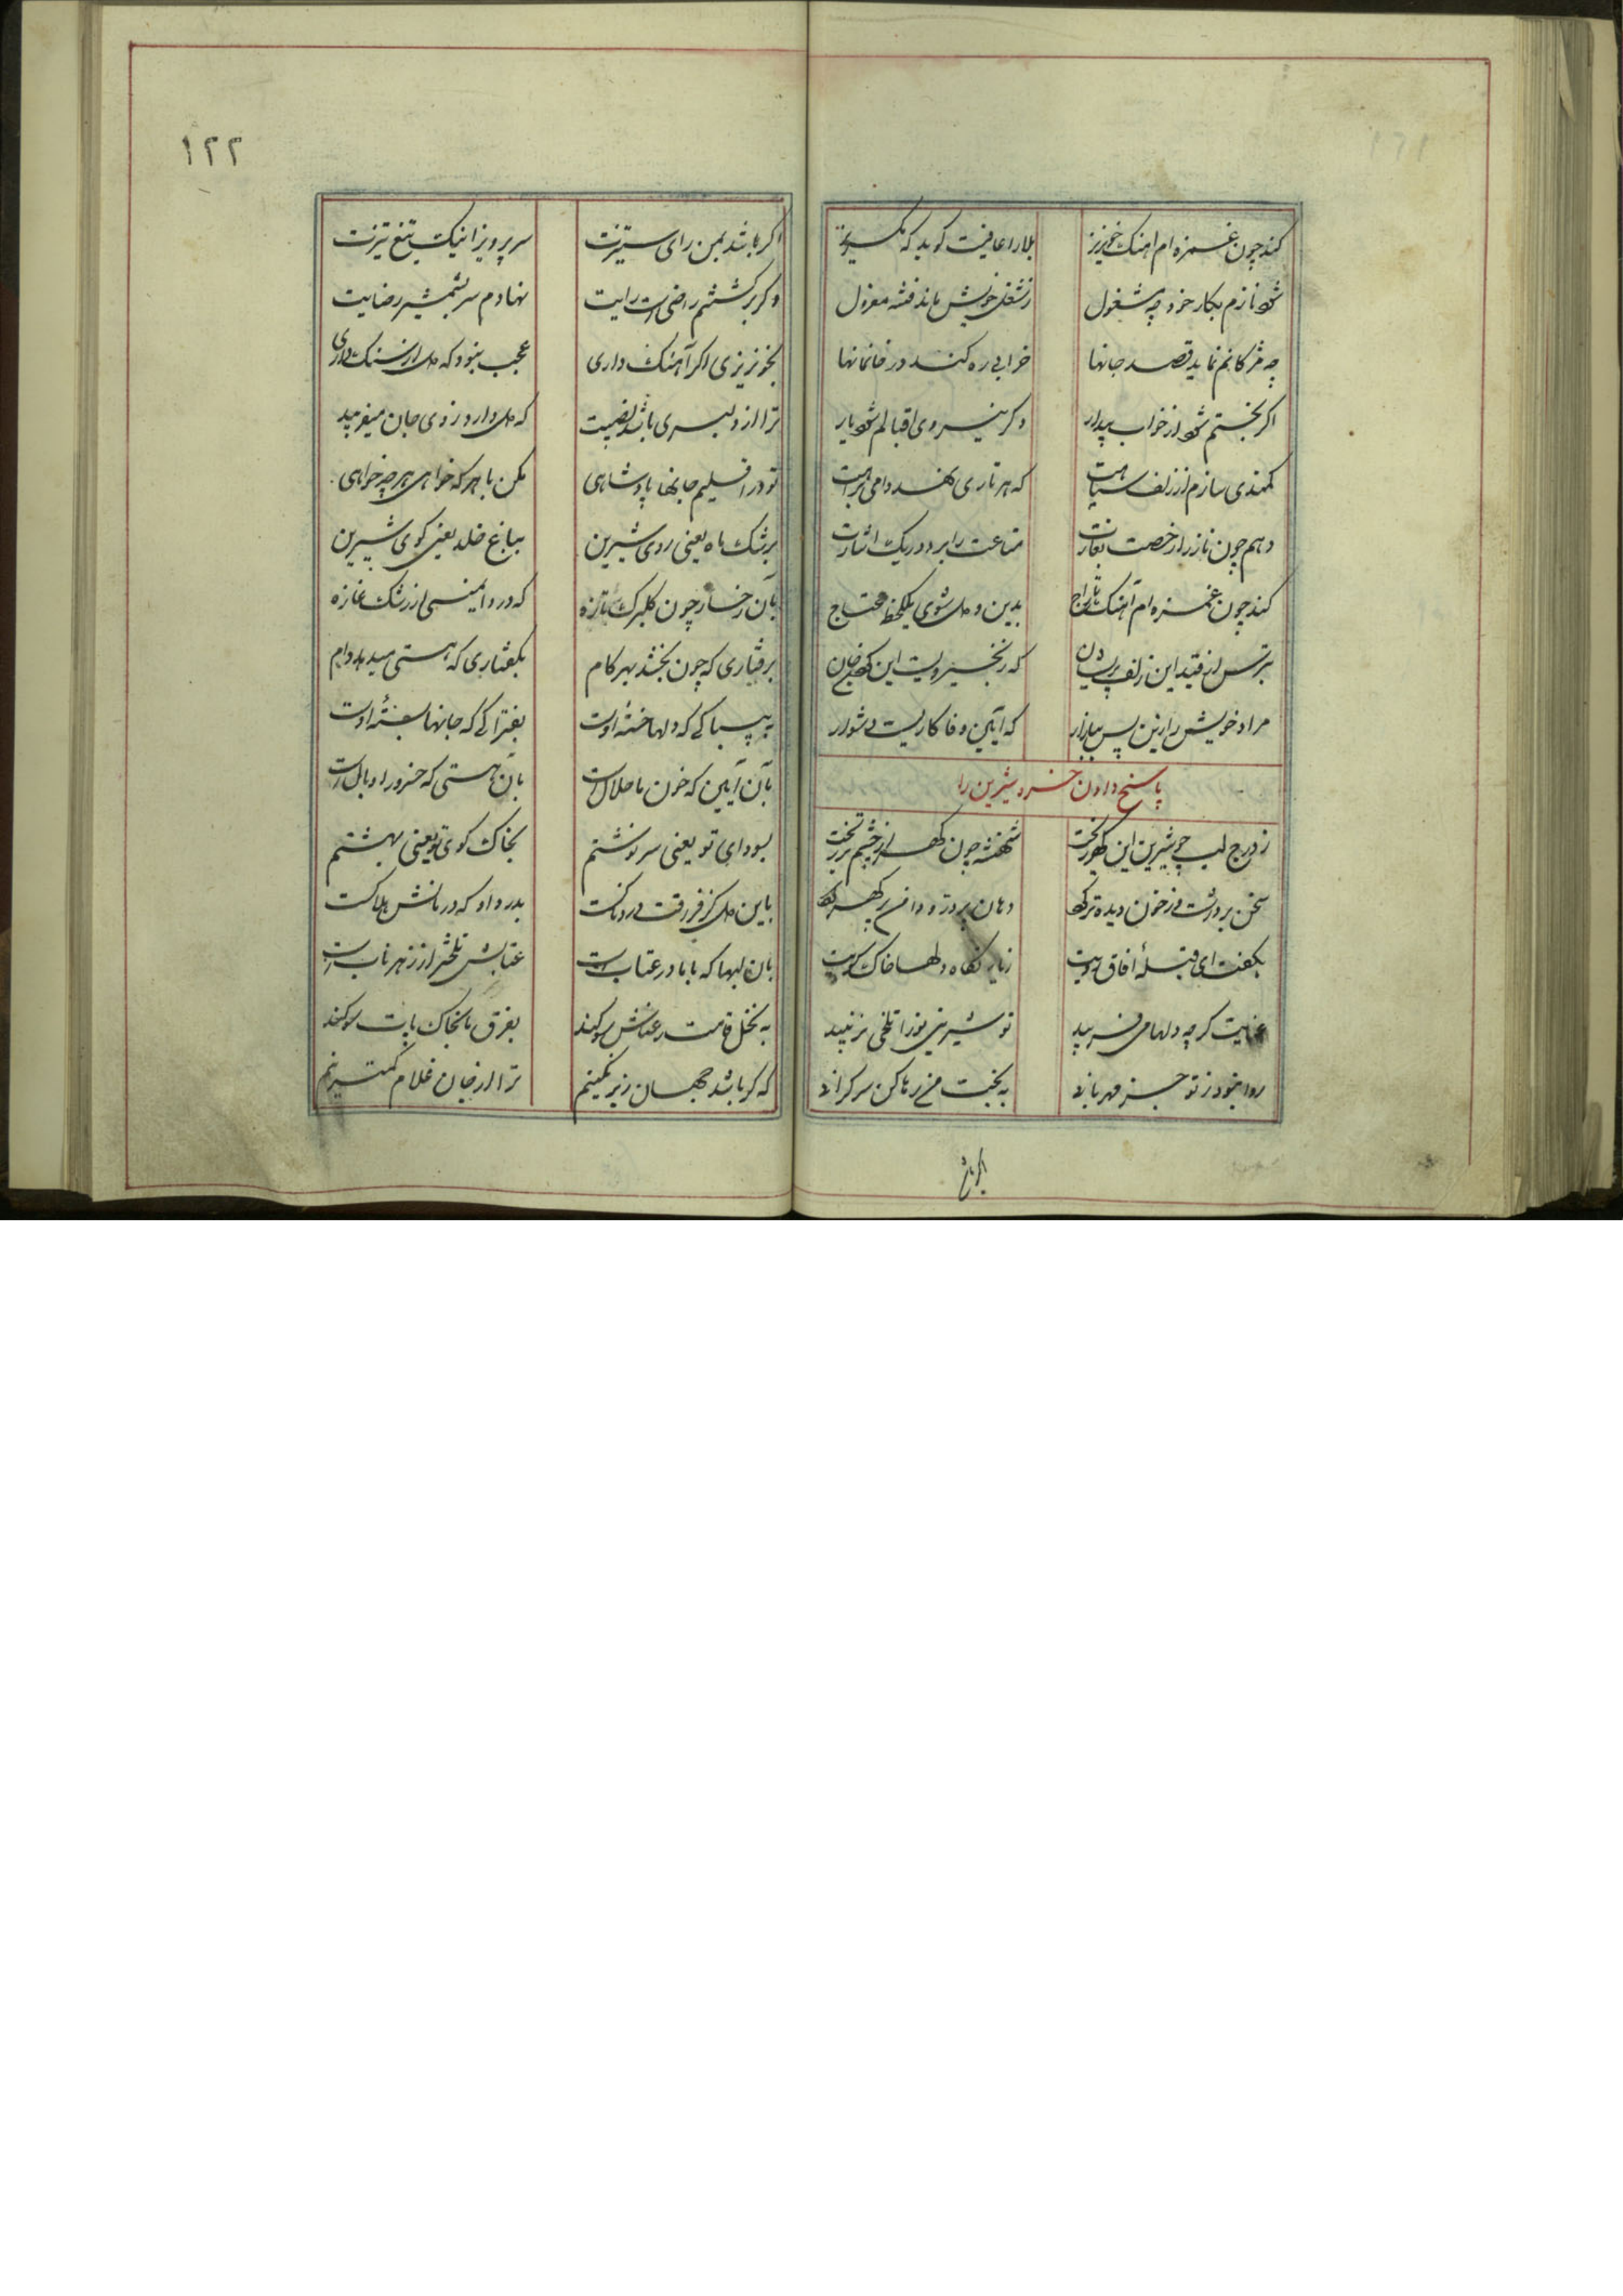 کند چون غمزه ام اهنک خونریز بلا را عافیت کوید که بکریز
شود نازم بکار خود چه مشغول ز شغل خویش ماند فتنه معزول
چه مژکانم نماید قصد جانها خرابی ره کند در خانمانها
اکر بختم شود از خواب بیدار وکر نیروی اقبالم شود یار
کمندی سازم از زلف سیاهت که هر تاری نهد دامی براهت
دهم چون ناز را رخصت بغارت متاعت را برد در یک اشارت
کند چون غمزه ام آهنک تاراج بدین و دل شوی یکلحظه محتاج
بترس از قید این زلف پریشان که زنجیریست این
مراد خویش را زین پس میازار که آیین وفا کاریست دشوار
پاسخ دادن خسرو شیرین را
ز درج لب چو شیرین این کهر ریخت شهنشه چون کهر از چشم تر ریخت
سخن بر در شد ز خون دیده تر کرد دهان پر در و دامن پر کهر کرد
بکفت ای قبلهٔ آفاق رویت زیارتکاه دلها خاک کویت
عتابت کر چه دلها می فریبد تو شیرینی تو را تلخی نزیبد
روا نبود ز تو جز مهربانی به بخت من رها کن سر کرانی
اکر باشد
۱۲۲
اکر باشد بمن رای ستیزت سر پرویز اینک تیغ تیزت
وکر بر کشتنم راضی است رایت نهادم سر بشمشیر رضایت
بخونریزی اکر آهنک داری عجب نبود که دل از سنک داری
ترا از دلبری باشد نصیبت که دل دارد ز وی جان میفریبد
تو در اقلیم جانها پادشاهی بکن با هر که خواهی هر چه خواهی
برشک ماه یعنی روی شیرین بباغ خلد یعنی کوی شیرین
بآن رخسار چون کلبرک تازه که دروا نیستی از رشک غازه
برفتاری که چون بخشد بهر کام بکفتاری که هستی میدهد وام
به بیباکی که دلها خستهٔ اوست بفتراکی که جانها بستهٔ اوست
بآن آیین که خون ما حلال است بآن هستی که خسرو را وبال است
بسودای تو یعنی سرنوشتم بخاک کوی تو یعنی بهشتم
باین دل کز فرقت دردناکست بدرد او که درمانش هلاکست
بان لبها که با ما در عتاب است عتابش تلختر از زهر ناب است
به نخل قامت رعناش سوکند بفرق ما بخاک پات سوکند
که کر باشد جهان زیر نکینم ترا از جان غلام کمترینم